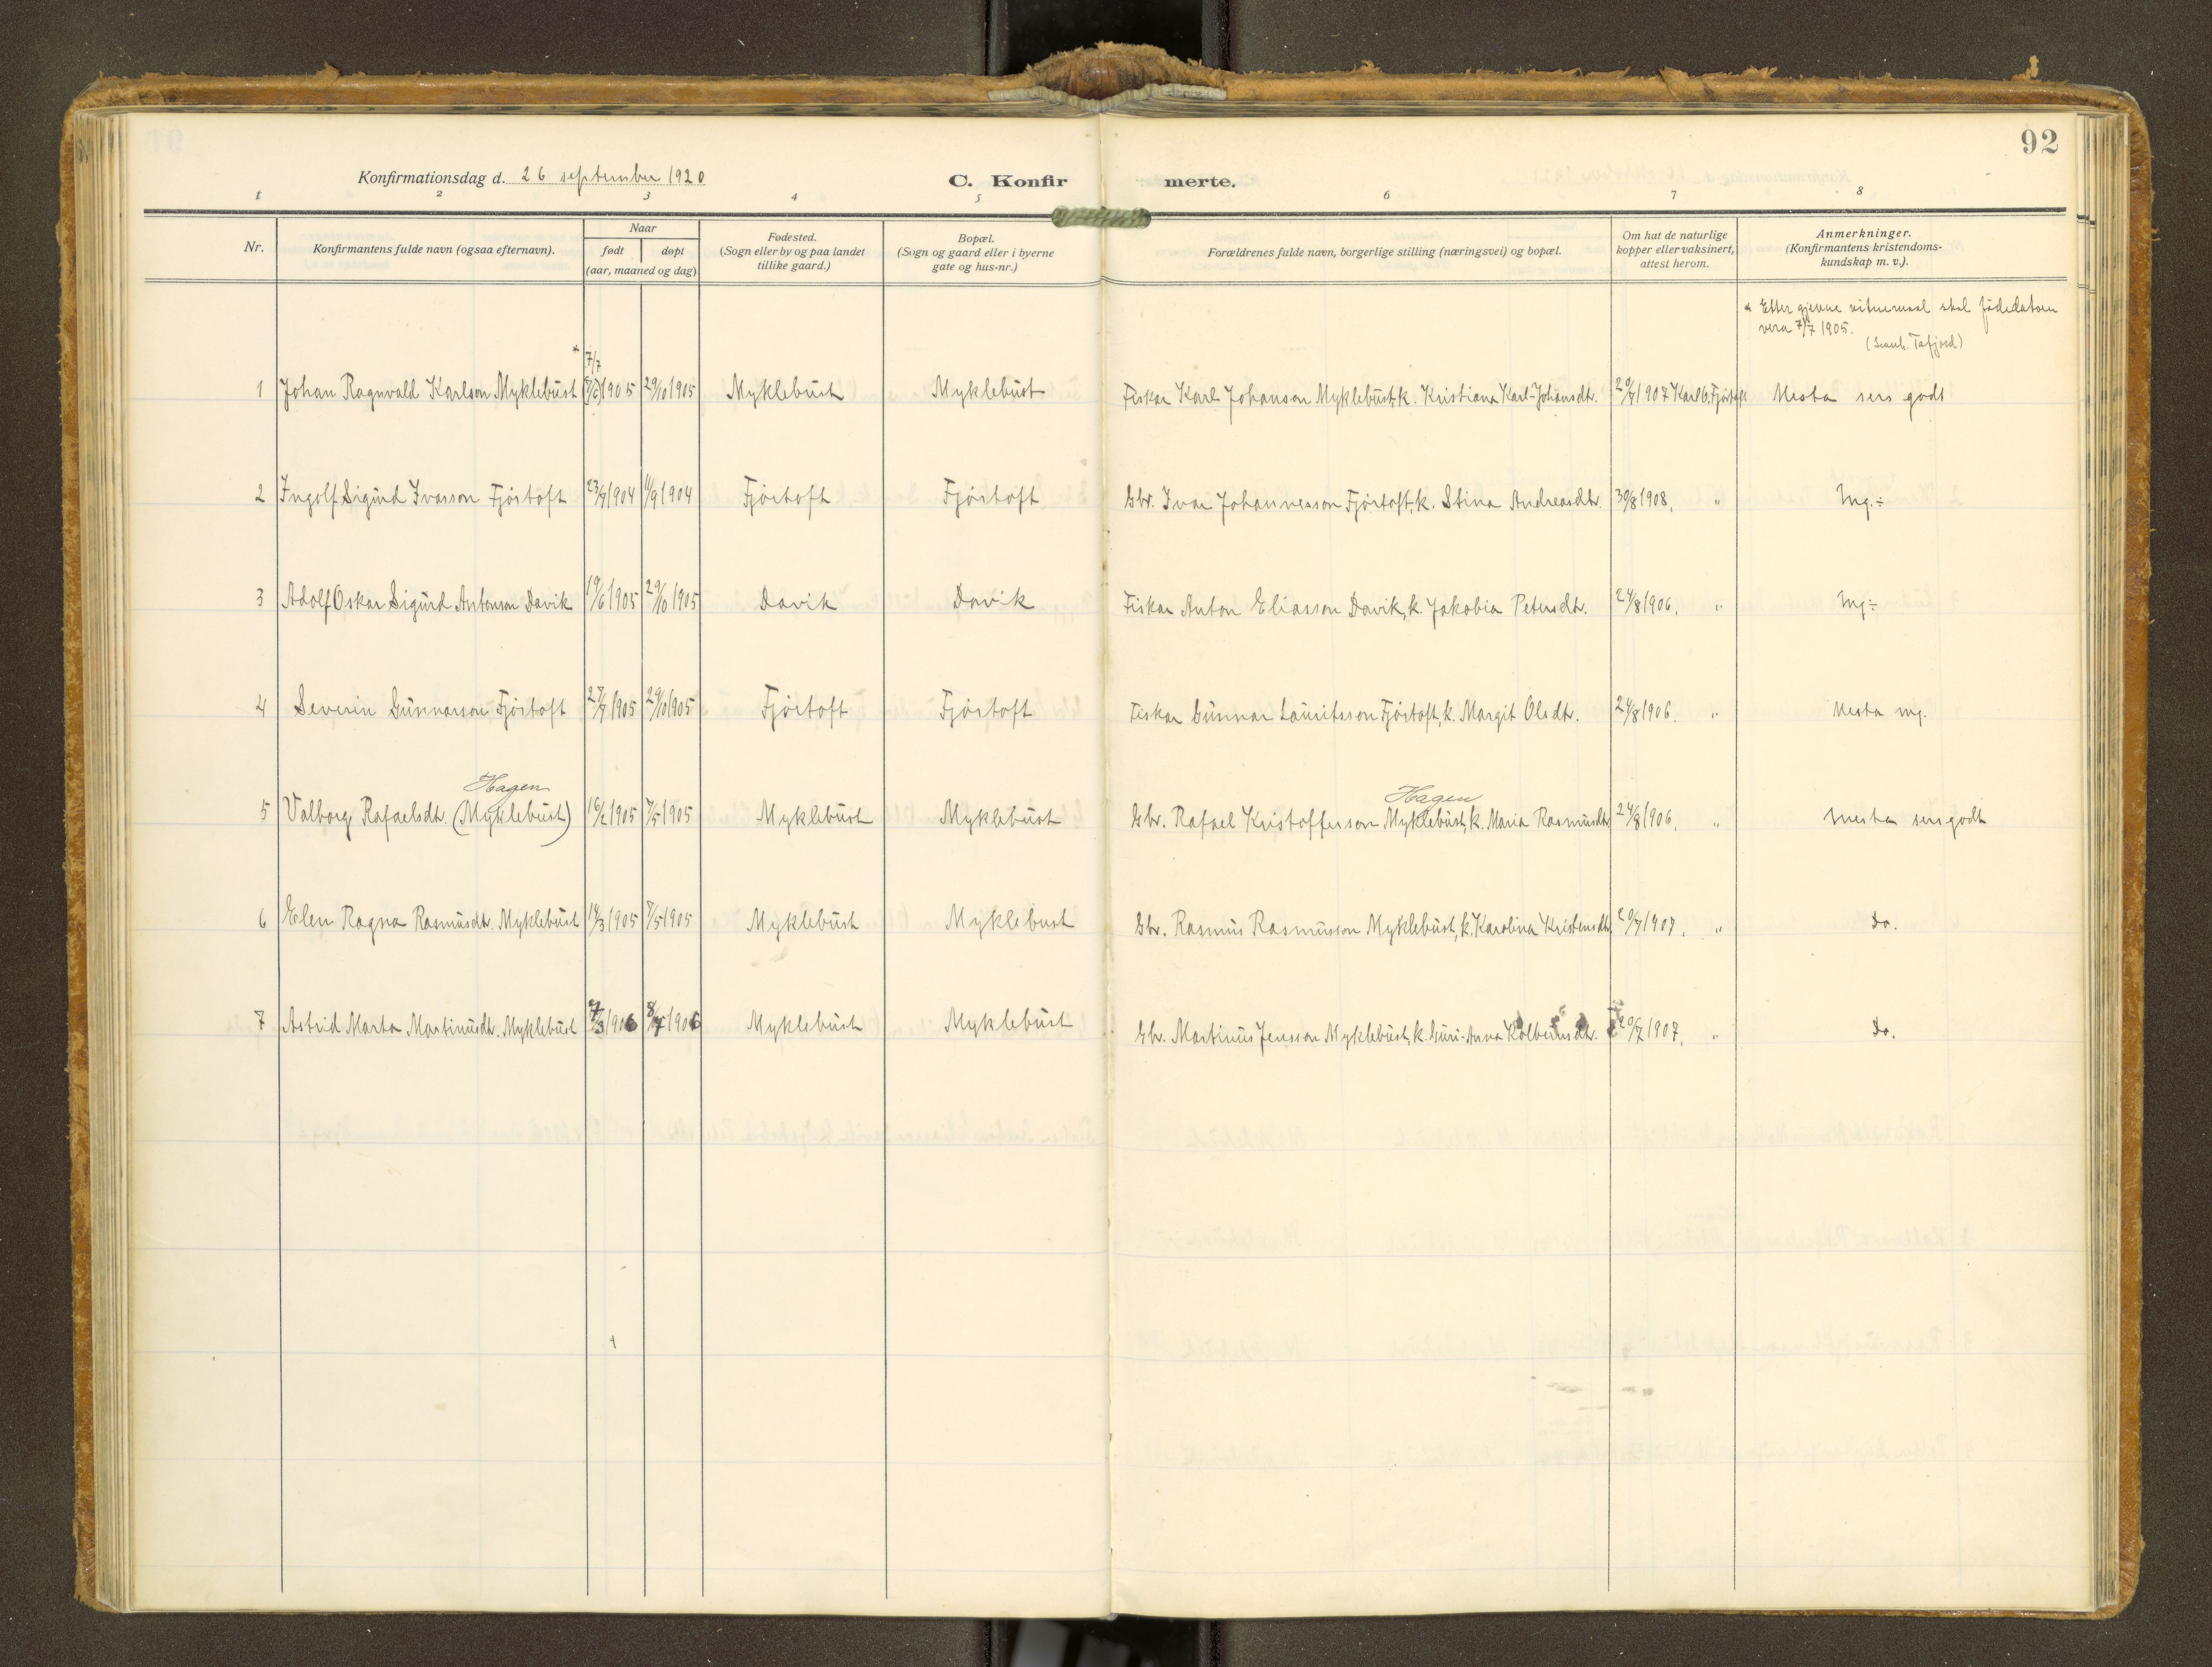 92
Konfirmationsdag d. 26 september 1920
C. Konfirmerte.
1 2 3 4 5 6 7 8
Nr. Konfirmantens fulde navn (ogsaa efternavn). Naar født døpt (aar, maaned og dag) Fødested. (Sogn eller by og paa landet tillike gaard.) Bopæl. (Sogn og gaard eller i byerne gate og hus-nr.) Forældrenes fulde navn, borgerlige stilling (næringsvei) og bopæl. Om hat de naturlige kopper eller vaksinert, attest herom. Anmerkninger. (Konfirmantens kristendoms-kundskap m. v.).
* Etter gjevne vitnemaal skal fødedatoen
vera 7/7 1905.
* 7/7
1 Johan Ragnvald Karlson Myklebust 1905 29/10 1905 Myklebust Myklebust Fiskar Karl Johanson Myklebust, k. Kristiana Karl-Johansdtr. 20/7 1907 Karl O. Fjørtoft Mesta sers godt
2 Ingolf Sigurd Ivarson Fjørtoft 23/7 1904 11/9 1904 Fjørtoft Fjørtoft Gbr. Ivar Johannesson Fjørtoft, k. Stina Andreasdtr. 30/8 1908. " Mg.÷
3 Adolf Oskar Sigurd Antonson Davik 19/6 1905 29/10 1905 Davik Davik Fiskar Anton Eliasson Davik, k. Jakobia Petersdtr. 24/8 1906. " Mg÷
4 Severin Gunnarson Fjørtoft 27/7 1905 29/10 1905 Fjørtoft Fjørtoft Fiskar Gunnar Lauritsson Fjørtoft, k. Margit Olsdtr. 24/8 1906. " Mesta mg.
Hagen Hagen
5 Valborg Rafaelsdtr. (Myklebust) 16/2 1905 7/5 1905 Myklebust Myklebust Gbr. Rafael Kristofferson Myklebust, k. Maria Rasmusdtr. 24/8 1906. " Mesta sers godt
6 Elen Ragna Rasmusdtr. Myklebust 14/3 1905 7/5 1905 Myklebust Myklebust Gbr. Rasmus Rasmusson Myklebust, k. Karolina Kristensdtr. 20/7 1907. " Do.
7 Astrid Marta Martinusdtr. Myklebust 1906 1906 Myklebust Myklebust Gbr. Martinus Jensson Myklebust, k. Guri-Anna Kolbeinsdtr. 20/7 1907. " Do.